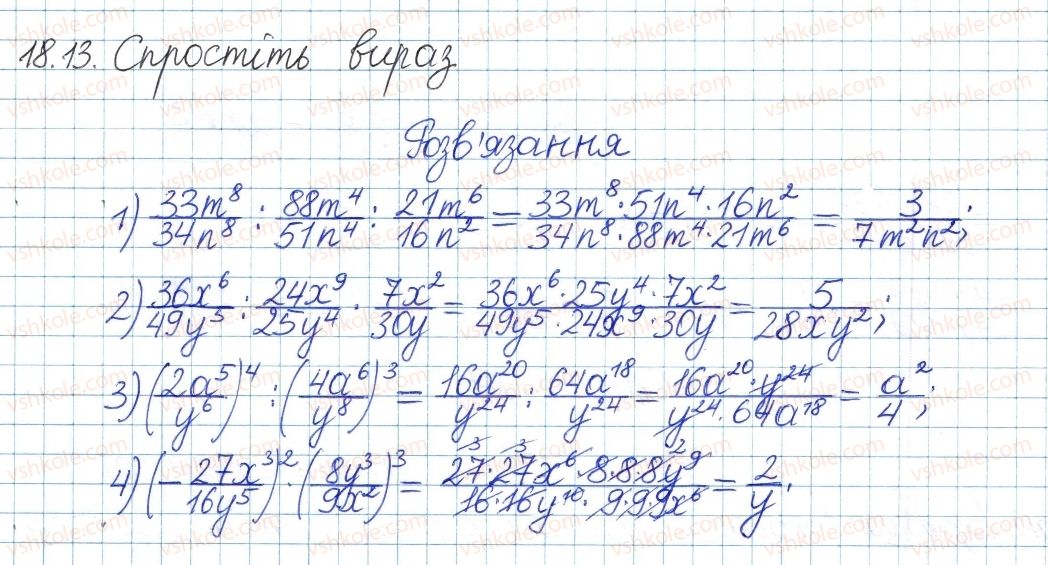 18.13. Спростіть вираз
Розв'язання
1) 33m⁸/34n⁸ : 88m⁴/51n⁴ : 21m⁶/16n² = 33m⁸·51n⁴·16n²/34n⁸·88m⁴·21m⁶ = 3/7m²n²;
2) 36x⁶/49y⁵ : 24x⁹/25y⁴ · 7x²/30y = 36x⁶·25y⁴·7x²/49y⁵·24x⁹·30y = 5/28xy²;
3) (2a⁵/y⁶)⁴ : (4a⁶/y⁸)³ = 16a²⁰/y²⁴ : 64a¹⁸/y²⁴ = 16a²⁰·y²⁴/y²⁴·64a¹⁸ = a²/4;
4) (-27x³/16y⁵)² · (8y³/9x²)³ = 27·27x⁶·8·8·8y⁹/16·16y¹⁰·9·9·9x⁶ = 2/y.